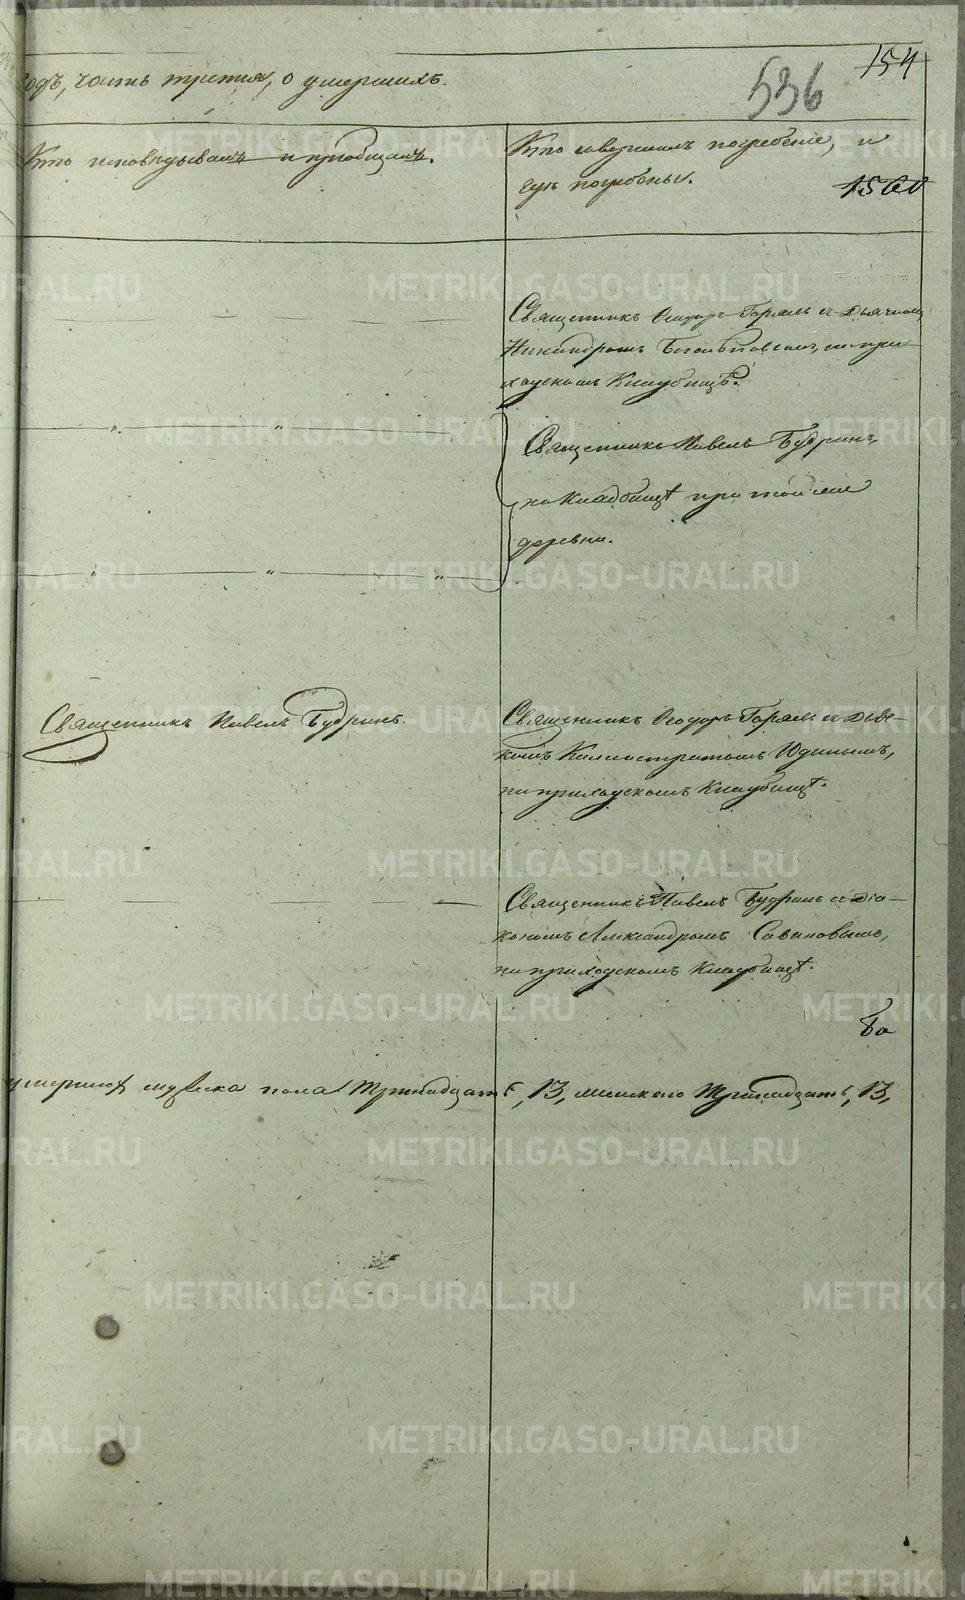 годъ, часть третия, о умершихъ.
154
536
Кто исповѣдывалъ и приобщалъ.
Кто совершалъ погребеніе, и
гдѣ погребены.
1560
Священникъ Ѳеодоръ с Дьячкомъ
Никандромъ на при-
ходскомъ Кладбищѣ.
Священникъ Павелъ Будринъ,
на Кладбищѣ при той же
деревни.
Священникъ Павелъ Будринъ.
Священникъ Ѳеодоръ с Дья-
комъ Каллистратомъ Юдинымъ,
на приходскомъ Кладбищѣ.
Священникъ Павелъ Будринъ с Діа-
кономъ Александромъ Савиновымъ,
на приходскомъ Кладбищѣ.
умершихъ мужска пола Тринадцать, 13, женскаго Тринадцать, 13,
METRIKI.GASO-URAL.RU